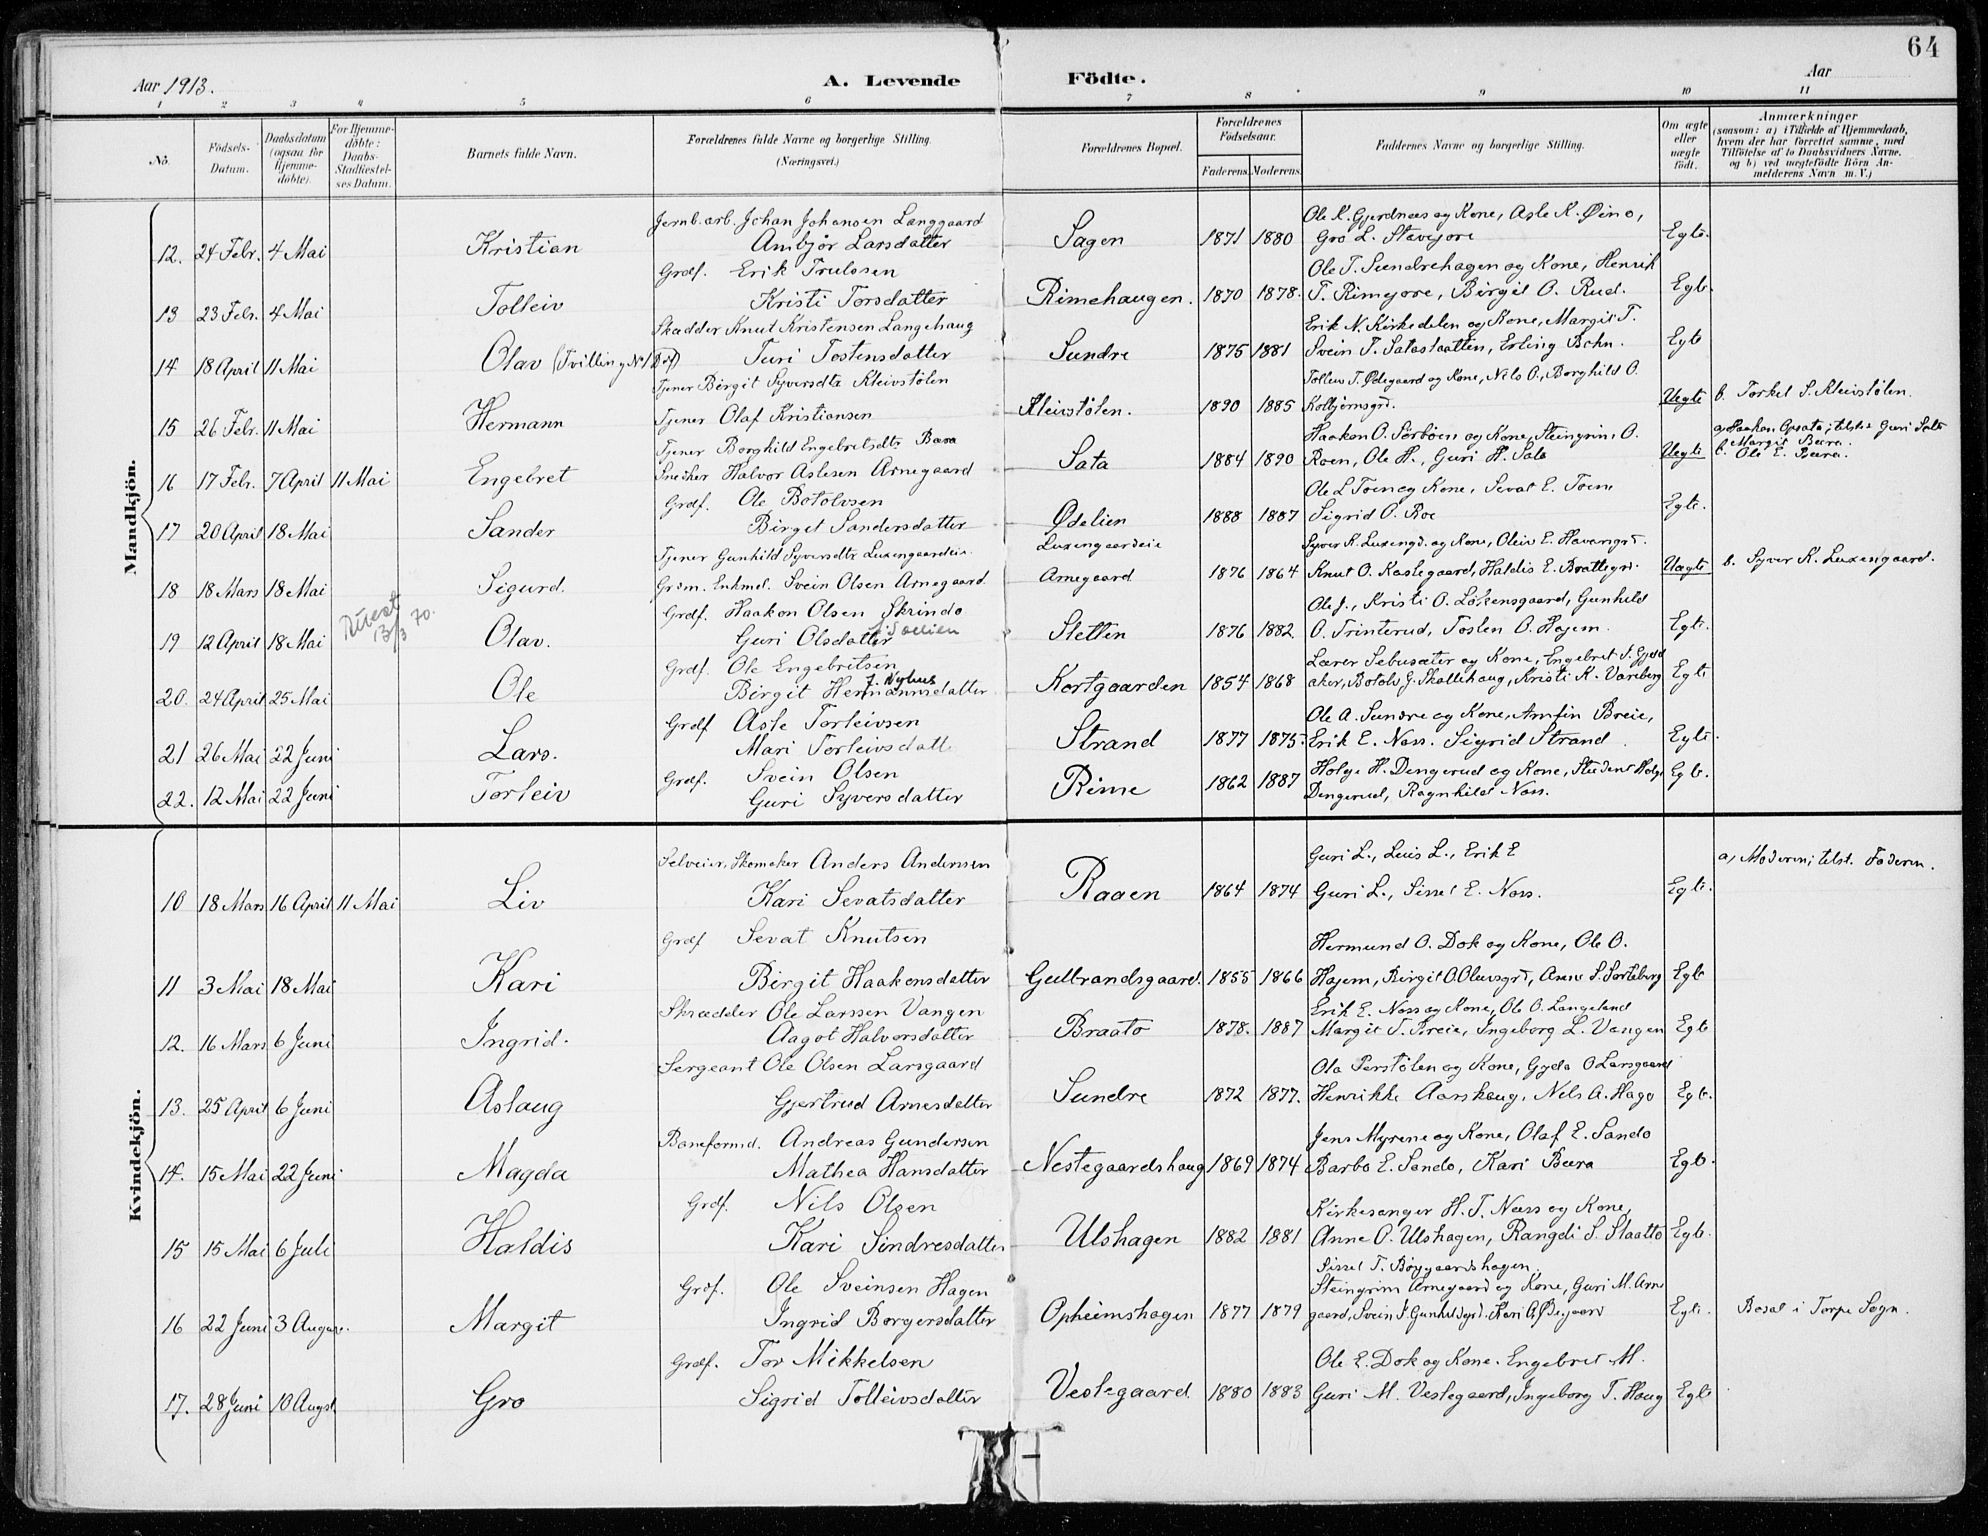 64
Aar 1913. A. Levende Födte. Aar
1 2 3 4 5 6 7 8 9 10 11
No. Födsels-Datum. Daabsdatum (ogsaa for Hjemmedöbte). For Hjemmedöbte: Daabs-Stadfæstelses Datum. Barnets fulde Navn. Forældrenes fulde Navne og borgerlige Stilling. (Næringsvei.) Forældrenes Bopæl. Forældrenes Födselsaar. Faderens. Moderens. Faddernes Navne og borgerlige Stilling. Om ægte eller uægte födt. Anmærkninger (saasom: a) i Tilfælde af Hjemmedaab, hvem der har forrettet samme, med Tilföielse af to Daabsvidners Navne, og b) ved uægtefödte Börn Anmelderens Navn m. V.)
Mandkjön.
Jernb.arb. Johan Johansen Langgaard Ole K. Gjerdnæs og Kone, Asle K. Øino,
12. 24 Febr. 4 Mai Kristian Ambjør Larsdatter Sagen 1871 1880 Gro L. Stavejore Egte.
Grdf. Erik Trulssen Ole T. Sundrehagen og Kone, Henrik
13 23 Febr. 4 Mai Tolleiv Kristi Torsdatter Rimehaugen. 1870 1878. T. Rimejore, Birgit O. Rud. Egt.
Skædder Knut Kristensen Langehaug Erik N. Kirkedelen og Kone, Margit T.
14 18 April 11 Mai Olav (Tvilling No 1 Døf) Turi Tostensdatter Sundre 1875 1881 Svein T. Sataslaatten, Erling Bohn. Egt
Tjener Birgit Syversdtr Kleivstølen Tolleiv T. Ødegaard og Kone, Nils O., Borghild O.
15 26 Febr. 11 Mai Hermann Tjener Olaf Kristiansen Kleivstølen. 1890 1885 Kolbjørnsgrd. Uegte b. Torkel S. Kleivstølen.
Tjener Borghild Engebretsdtr Bæra Haakon O. Sørbøen og Kone, Steingrim O. a, Haakon Opsata; tilst. Guri Sata Margit Bæra.
16 17 Febr. 7 April 11 Mai Engebret Snecker Halvor Aslesen Arnegaard Sata 1884 1890 Roen, Ole H., Guri H. Sata Uegte b. Ole E. Bæra.
Grdf. Ole Botolvsen Ole L Toen og Kone, Sevat E. Toen
17 20 April 18 Mai Sander Birgit Sandersdatter Ødelien 1888 1887 Sigrid O. Roe Egte.
Tjener Gunhild Syversdtr Luxengaardeie. Luxengaardeie Syver K. Luxengd. og Kone, Oleiv E. Havarsgrd.
18 18 Mars 18 Mai Sigurd. Grdm. Enkmd. Svein Olsen Arnegaard. Arnegaard 1876 1864 Knut O. Kaslegaard, Haldis E. Brattegrd. Uægte b. Syver K. Luxengaard.
Grdf. Haakon Olsen Skrindo Ole J., Kristi O. Løkensgaard, Gunhild
19 12 April 18 Mai 13/3 70. Olav. Guri Olsdatter Sletten 1876 1882 O. Trinterud, Tosten O. Hajem. Egte.
Grdf. Ole Engebritsen Lærer Sebusæter og Kone, Engebret S. Gjeld
20. 24 April 25 Mai Ole Birgit Hermannsdatter f. Nyhus Kortgaarden 1854 1868 aker, Botolv G. Skallehaug, Kristi K. Vareberg Egte
Grdf Asle Torleivsen Ole A. Sundre og Kone, Arnfin Breie,
21 26 Mai 22 Juni Lars. Mari Torleivsdatt. Strand 1877 1875. Erik E. Næss. Sigrid Strand. Egte.
Grdf. Svein Olsen Holge H. Dengerud og Kone, Student Holge
22. 12 Mai 22 Juni Torleiv Guri Syversdatter Rime 1862 1887 Dengerud, Ragnhild Næss. Egt.
Kvindekjön.
Selveier, Skomaker Anders Andersen Guri L., Leiv L., Erik E a, Moderen; tilst. Faderen.
10 18 Mars 16 April 11 Mai Liv Kari Sevatsdatter Raaen 1864 1874 Guri L., Sissel E. Næss. Egte.
Grdf Sevat Knutsen Hermund O. Dok og Kone, Ole O.
11 3 Mai 18 Mai Kari Birgit Haakonsdatter Gulbrandsgaard. 1855 1866 Hajem, Birgit O. Olavsgrd, Anne S. Sorteberg Egt
Skrædder Ole Larssen Vangen Erik E. Næss og Kone, Ole O. Langeland
12. 16 Mars 6 Juni Ingrid. Aagot Halvorsdatter Braato 1878. 1887 Margit T. Breie, Ingeborg L. Vangen Egt
Sergeant Ole Olsen Larsgaard Ola Perstølen og Kone, Gyda O Larsgaard
13. 25 April 6 Juni Aslaug Gjertrud Arnesdatter Sundre 1872 1877. Henrikke Aarskaug, Nils A. Hago Egt.
Baneformd. Andreas Gundersen Jens Myrene og Kone, Olaf E. Sando
14. 15 Mai 22 Juni Magda Mathea Hansdatter Nestegaardshaug 1869 1874 Barbo E. Sando, Kari Bæra Egt.
Grdf. Nils Olsen Kirkesanger H. T. Næss og Kone,
15 15 Mai 6 Juli Haldis Kari Sindresdatter Ulshagen 1882 1881 Anne O. Ulshagen, Rangdi S. Slaatto Egt.
Sissel T. Bøygaardshagen.
Grdf. Ole Sveinsen Hagen Steingrim Arnegaard og Kone, Guri M. Arne
16 22 Juni 3 August. Margit Ingrid Borgersdatter Opheimshagen 1877 1879 gaard, Svein J. Gunhildgrd. Kari A. Øigaard Egte. Bosat i Torpe Sogn.
Grdf. Tor Mikkelsen Ole E. Dok og Kone. Engebret M.
17. 28 Juni 10 August Gro Sigrid Tolleivsdatter Vestegaard 1880 1883 Guri M. Vestegaard, Ingeborg T. Haug Egte